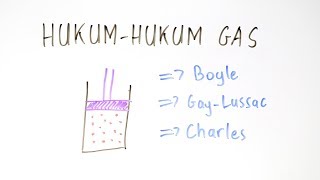 HUKUM-HUKUM GAS
=> Boyle
=> Gay-Lussac
=> Charles